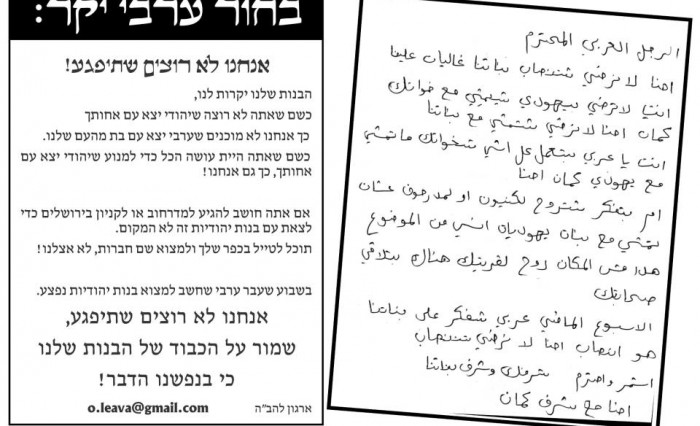 בחור ערבי יקר:
אנחנו לא רוצים שתיפגע!
הבנות שלנו יקרות לנו,
כשם שאתה לא רוצה שיהודי יצא עם אחותך
כך אנחנו לא מוכנים שערבי יצא עם בת מהעם שלנו.
כשם שאתה היית עושה הכל כדי למנוע שיהודי יצא עם
אחותך, כך גם אנחנו!
אם אתה חושב להגיע למדרחוב או לקניון בירושלים כדי
לצאת עם בנות יהודיות זה לא המקום.
תוכל לטייל בכפר שלך ולמצוא שם חברות, לא אצלנו!
בשבוע שעבר ערבי שחשב למצוא בנות יהודיות נפצע.
אנחנו לא רוצים שתיפגע,
שמור על הכבוד של הבנות שלנו
כי בנפשנו הדבר!
ארגון להב"ה o.leava@gmail.com
الرجل العربي المحترم
احنا لا نرضي بناتنا غاليات علينا
لا ترضي يهودي مع خواتك
كمان احنا لا نرضي تتمشي مع بناتنا
انت يا عربي بتعمل كل اشي شخواتك ماتمشي
مع يهودي كمان احنا
ام بتفكر شتروح لكنيون او لمدرحوف عشان
تمشي مع بنات يهوديات انسي من الموضوع
هدا مش المكان روح لقريتك هناك بتلاقي
صحاباتك
الاسبوع الماضي عربي شفكر على بناتنا
هو انصاب احنا لا نرضي
استمر واحترم شرفك وشرف بناتنا
احنا مع شرف كمان